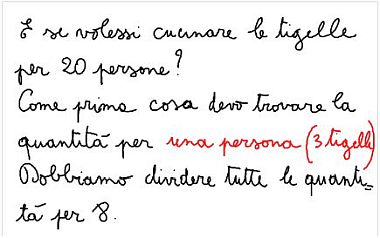 E se volessi cucinare le tigelle
per 20 persone?
Come prima cosa devo trovare la
quantità per una persona (3 tigelle)
Dobbiamo dividere tutte le quanti=
tà per 8.